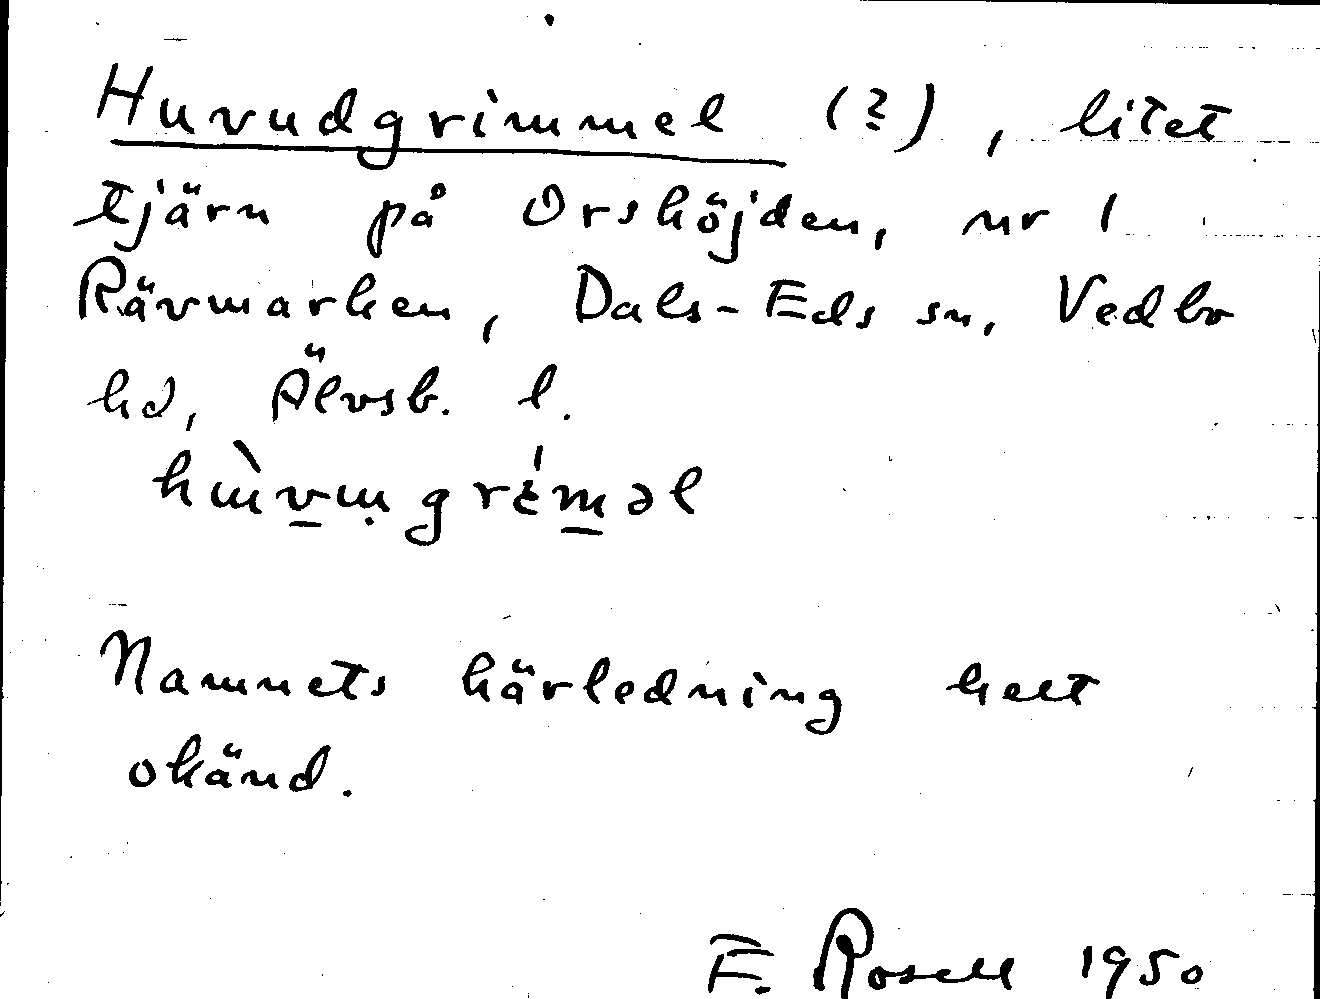 Huvudgrimmel (?), litet
tjärn på Orshöjden, nr 1
Rävmarken, Dals-Eds sn, Vedbo
hd, Älvsb. l.
Namnets härledning helt
okänd.
E. Rosell 1950